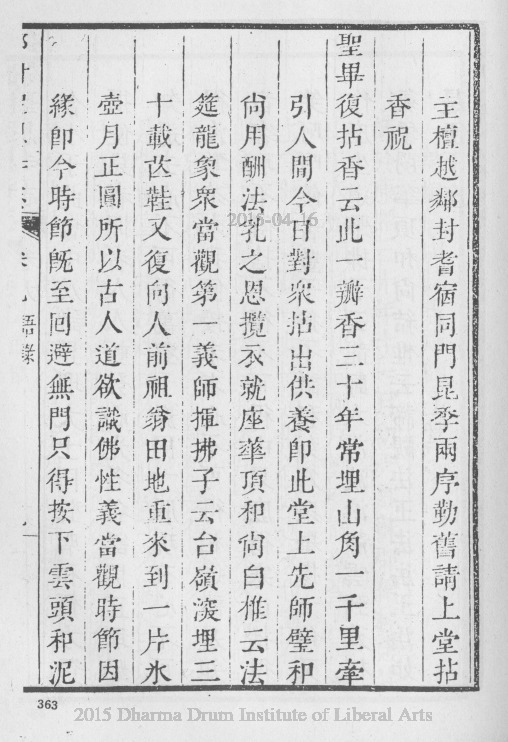 主檀越鄰封耆宿同門昆季兩序勤舊請上堂拈
香祝
聖畢復拈香云此一瓣香三十年常埋山角一千里牽
引人間今日對眾拈出供養即此堂上先師璧和
尙用酬法乳之恩攬衣就座華頂和尙白椎云法
筵龍象眾當觀第一義師揮拂子云台嶺深埋三
十載芒鞋又復向人前祖翁田地重來到一片氷
壺月正圓所以古人道欲識佛性義當觀時節因
緣卽今時節旣至囘避無門只得按下雲頭和泥
語錄
2015-04-16
363
2015 Dharma Drum Institute of Liberal Arts